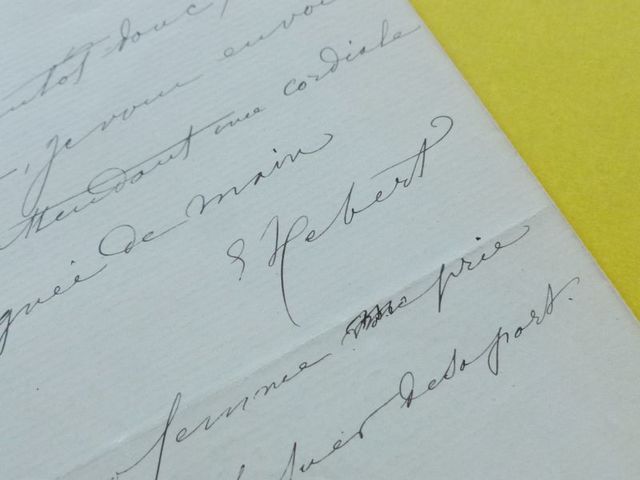 donc,
je vous envoi
ttendant une cordiale
gnée de main
E Hebert
femme me prie
de sa part.